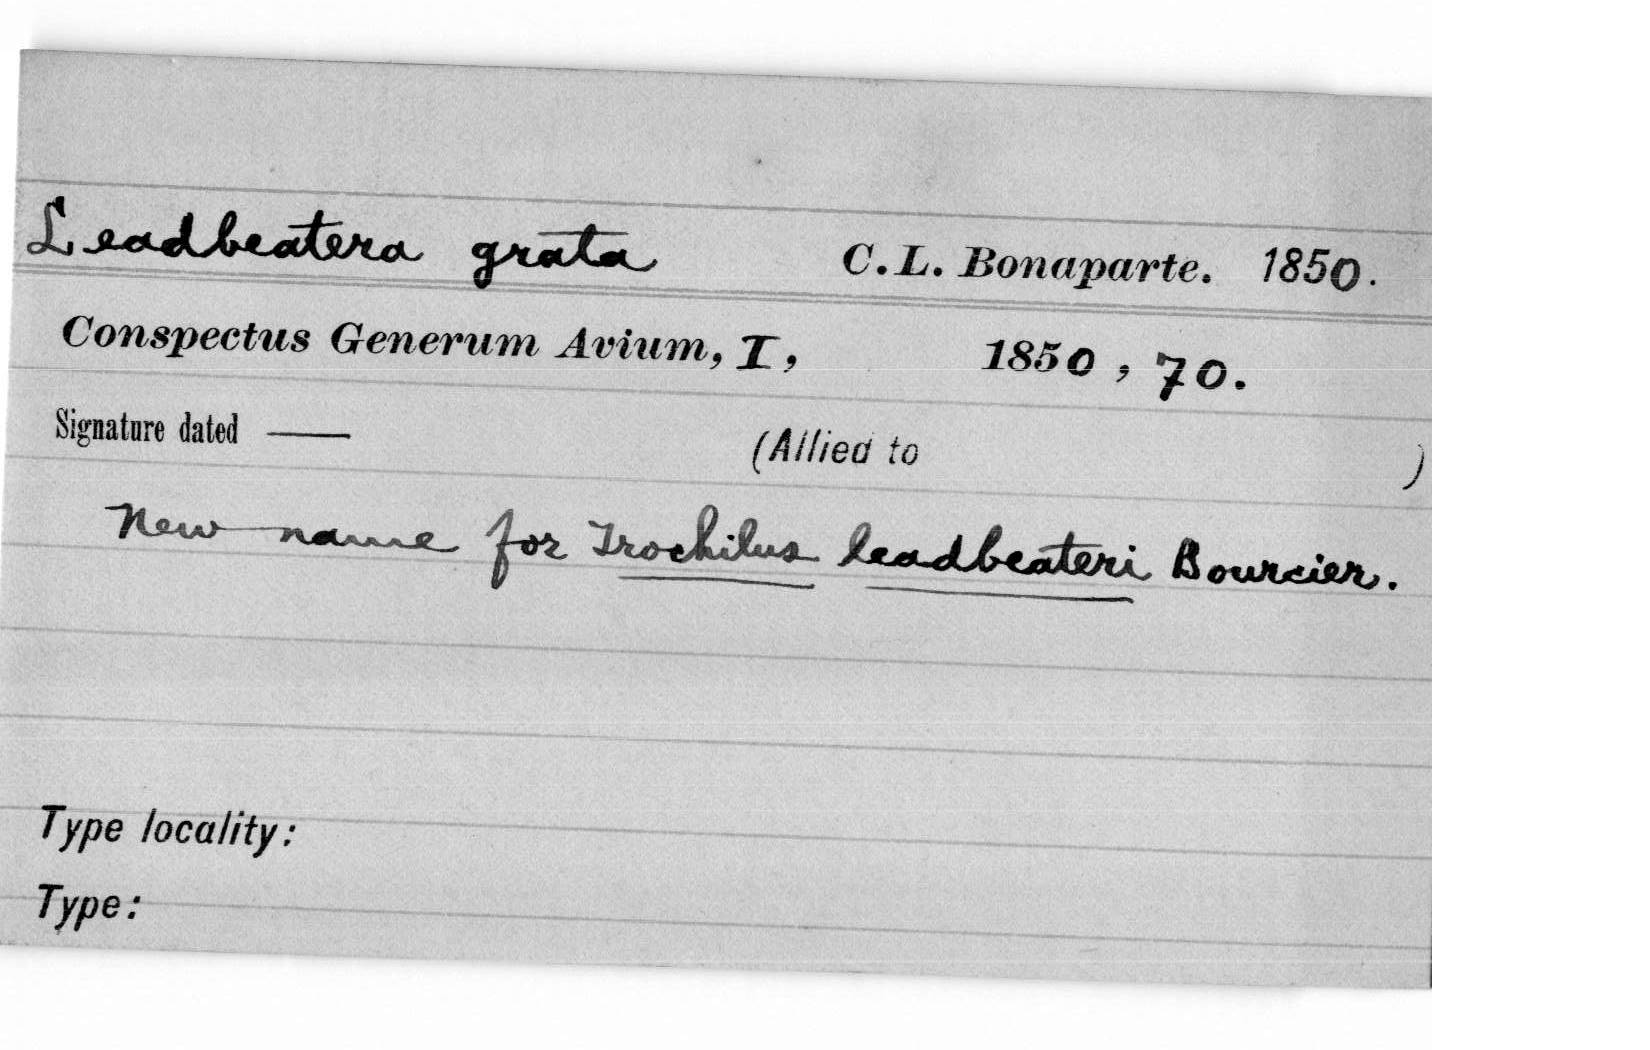 Leadbeatera grata C. L. Bonaparte. 1850.
Conspectus Generum Avium, I, 1850, 70.
Signature dated —— (Allied to )
New name for Trochilus leadbeateri Bourcier.
Type locality:
Type: